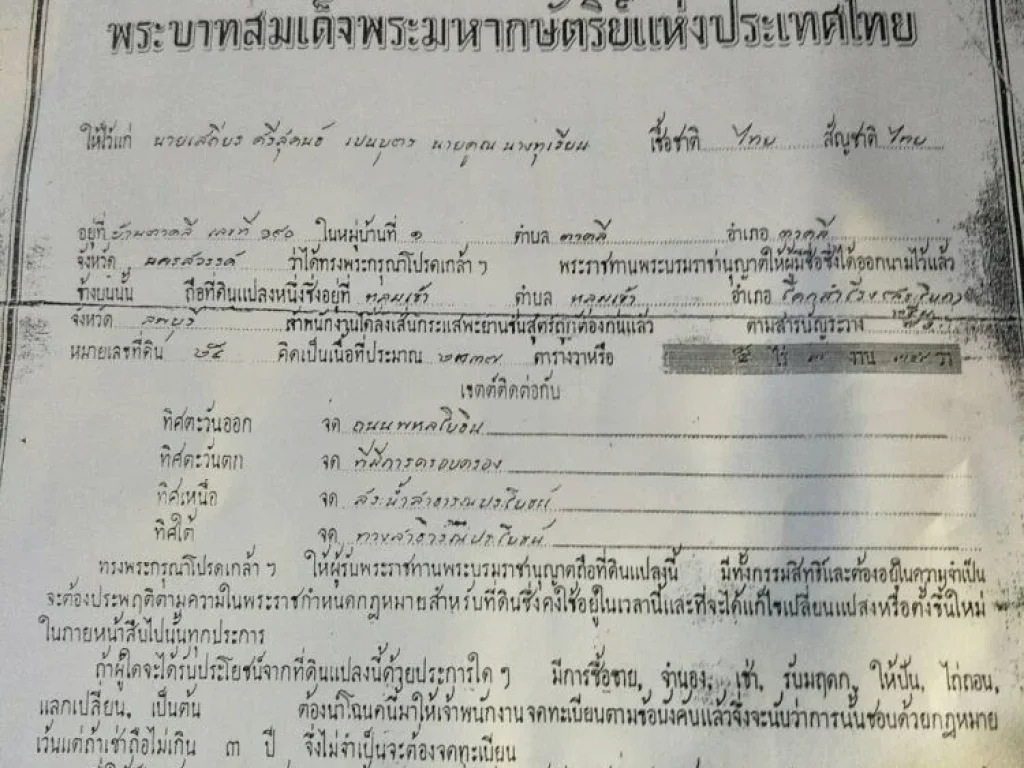 พระบาทสมเด็จพระมหากษัตริย์แห่งประเทศไทย
ให้ไว้แก่ นายเสถียร ศรีสุคนธ์ เปนบุตร นายคูณ นางทุเรียน เชื้อชาติ ไทย สัญชาติ ไทย
อยู่ที่ บ้านตาคลี เลขที่ ๑๙๐ ในหมู่บ้านที่ ๑ ตำบล ตาคลี อำเภอ ตาคลี
จังหวัด นครสวรรค์ ว่าได้ทรงพระกรุณาโปรดเกล้า ฯ พระราชทานพระบรมราชานุญาตให้ผู้มีชื่อซึ่งได้ออกนามไว้แล้ว
ข้างบนนั้น ถือที่ดินแปลงหนึ่งซึ่งอยู่ที่ หลุมเข้า ตำบล หลุมเข้า อำเภอ โคกสำโรง
จังหวัด ลพบุรี สำนักงานได้ลงเส้นกระแสพะยานชันสูตร์ถูกต้องกันแล้ว ตามสารบัญระวาง
หมายเลขที่ดิน ๒๕ คิดเป็นเนื้อที่ประมาณ ๒๓๓๗ ตารางวาหรือ ๕ ไร่ ๓ งาน ๓๗ วา
เขตต์ติดต่อกับ
ทิศตะวันออก จด ถนนพหลโยธิน
ทิศตะวันตก จด ที่มีการครอบครอง
ทิศเหนือ จด สระน้ำสาธารณประโยชน์
ทิศใต้ จด ทางสาธารณประโยชน์
ทรงพระกรุณาโปรดเกล้า ฯ ให้ผู้รับพระราชทานพระบรมราชานุญาตถือที่ดินแปลงนี้ มีทั้งกรรมสิทธิ์และต้องอยู่ในความจำเป็น
จะต้องประพฤติตามความในพระราชกำหนดกฎหมายสำหรับที่ดินซึ่งคงใช้อยู่ในเวลานี้และที่จะได้แก้ไขเปลี่ยนแปลงหรือตั้งขึ้นใหม่
ในภายหน้าสืบไปนั้นทุกประการ
ถ้าผู้ใดจะได้รับประโยชน์จากที่ดินแปลงนี้ด้วยประการใด ๆ มีการซื้อขาย, จำนอง, เช่า, รับมฤดก, ให้ปัน, ไถ่ถอน,
แลกเปลี่ยน, เป็นต้น ต้องนำโฉนดนี้มาให้เจ้าพนักงานจดทะเบียนตามข้อบังคับแล้วจึ่งจะนับว่าการนั้นชอบด้วยกฎหมาย
เว้นแต่ถ้าเช่าถือไม่เกิน ๓ ปี จึ่งไม่จำเป็นจะต้องจดทะเบียน